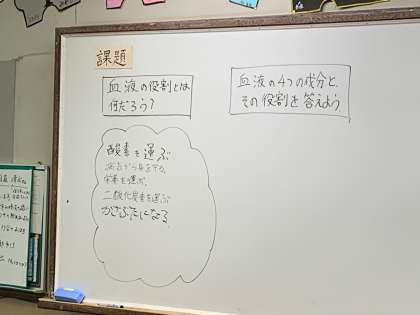 課題
血液の役割とは
何だろう？
血液の4つの成分と、
その役割を答えよう
酸素を運ぶ
病気から体を守る。
栄養を運ぶ。
二酸化炭素を運ぶ
かさぶたになる。